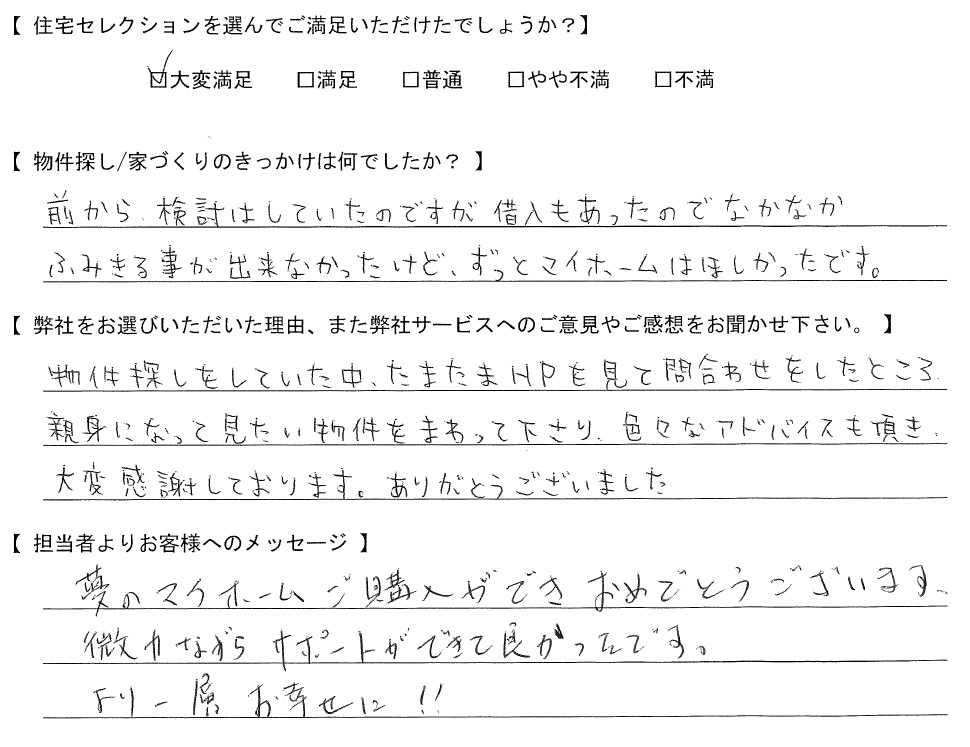 【 住宅セレクションを選んでご満足いただけたでしょうか？】
☑大変満足 □満足 □普通 □やや不満 □不満
【 物件探し/家づくりのきっかけは何でしたか？ 】
前から、検討はしていたのですが 借入もあったので なかなか
ふみきる事が出来なかったけど、ずっとマイホームはほしかったです。
【 弊社をお選びいただいた理由、また弊社サービスへのご意見やご感想をお聞かせ下さい。 】
物件探しをしていた中、たまたまHPを見て問合わせをしたところ、
親身になって見たい物件をまわって下さり、色々なアドバイスも頂き、
大変感謝しております。ありがとうございました
【 担当者よりお客様へのメッセージ 】
夢のマイホームご購入ができ おめでとうございます。
微力ながら サポートができて良かったです。
より一層 お幸せに !!